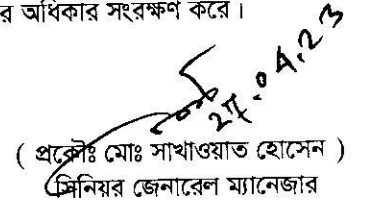 র অধিকার সংরক্ষণ করে।
( প্রকৌঃ মোঃ সাখাওয়াত হোসেন )
সিনিয়র জেনারেল ম্যানেজার